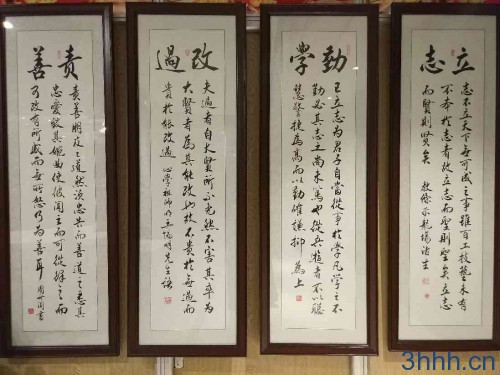 立志
志不立天下無可成之事雖百工技藝未有
不本於志者故立志而聖則聖矣立志
而賢則賢矣 教條示龍場諸生
勤學
已立志為君子自當從事於學凡學之不
勤必其志之尚未篤也從吾遊者不以聰
慧警捷為高而以勤確謙抑為上
改過
夫過者自大賢所不免然不害其卒為
大賢者為其能改也故不貴於無過而
貴於能改過 心學祖師明王陽明先生語
責善
責善朋友之道然須忠告而善道之悉其
忠愛致其婉曲使彼聞之而可從繹之而
可改有所感而無所怒乃為善耳
3hhh.cn